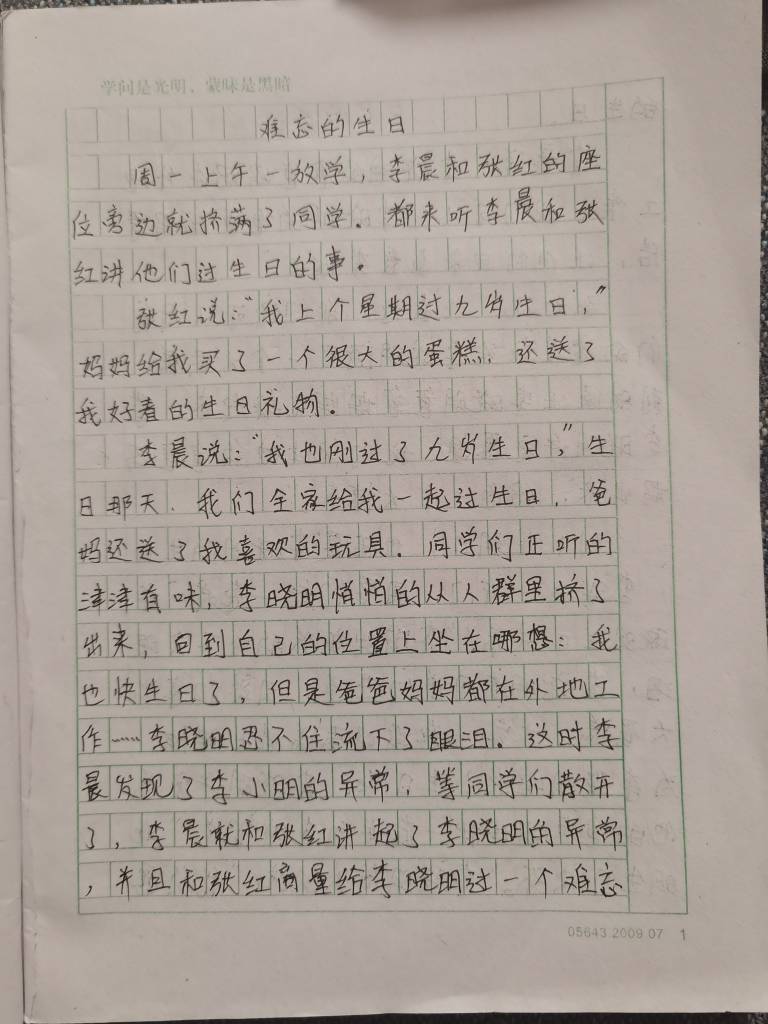 学问是光明，蒙昧是黑暗
难忘的生日
周一上午一放学，李晨和张红的座
位旁边就挤满了同学．都来听李晨和张
红讲他们过生日的事。
张红说：“我上个星期过九岁生日，”
妈妈给我买了一个很大的蛋糕．还送了
我好看的生日礼物．
李晨说：“我也刚过了九岁生日，”生
日那天．我们全家给我一起过生日．爸
妈还送了我喜欢的玩具．同学们正听的
津津有味，李晓明悄悄的从人群里挤了
出来，回到自己的位置上坐在哪想：我
也快生日了，但是爸爸妈妈都在外地工
作……李晓明忍不住流下了眼泪．这时李
晨发现了李小明的异常，等同学们散开
了，李晨就和张红讲起了李晓明的异常
，并且和张红商量给李晓明过一个难忘
05643.2009.07 1